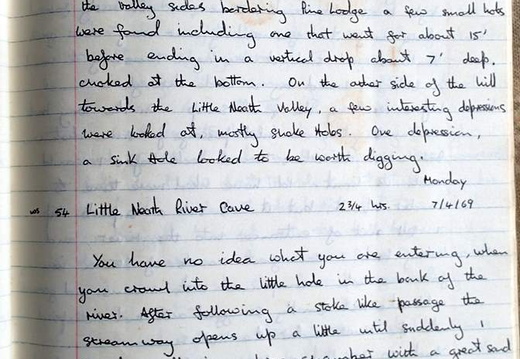 the valley sides bordering Pine Lodge a few small hols
were found including one that went for about 15'
before ending in a vertical drop about 7' deep,
choked at the bottom. On the other side of the hill
towards the Little Neath Valley, a few interesting depressions
were looked at, mostly shake Hobs. One depression,
a sink Hole looked to be worth digging.
Monday
54 Little Neath River Cave 2 3/4 hrs. 7/4/69
You have no idea what you are entering, when
you crawl into the little hole in the bank of the
river. After following a stoke like passage the
streamway opens up a little until suddenly
with a great sand